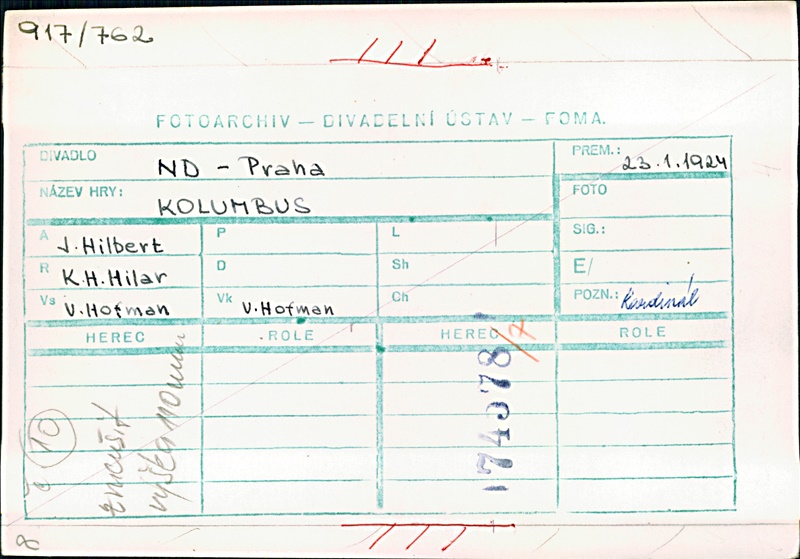 917/762
FOTOARCHIV — DIVADELNÍ ÚSTAV — FOMA.
DIVADLO ND - Praha
PREM.: 23.1.1924
NÁZEV HRY: KOLUMBUS
FOTO
A J. Hilbert
P
L
SIG.:
R K.H. Hilar
D
Sh
E/
Vs V. Hofman
Vk V. Hofman
Ch
POZN.: Kardinál
HEREC ROLE HEREC ROLE
zmenšit
výška 110 mm
č 10
174078/7
8